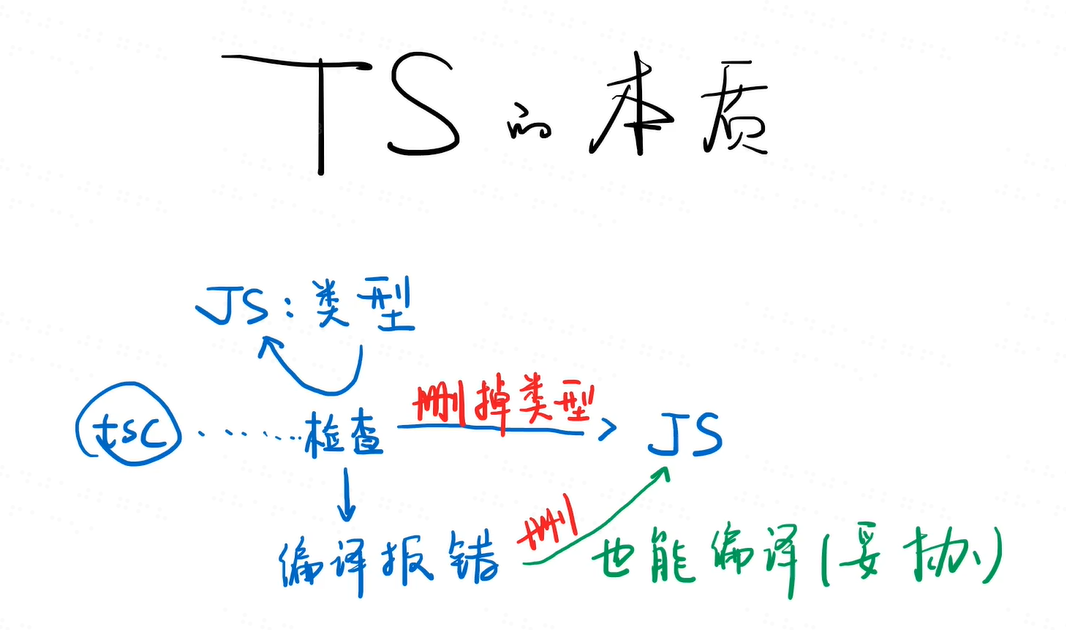 TS的本质
JS:类型
tsc ...... 检查 删掉类型 JS
编译报错 删 也能编译(妥协)